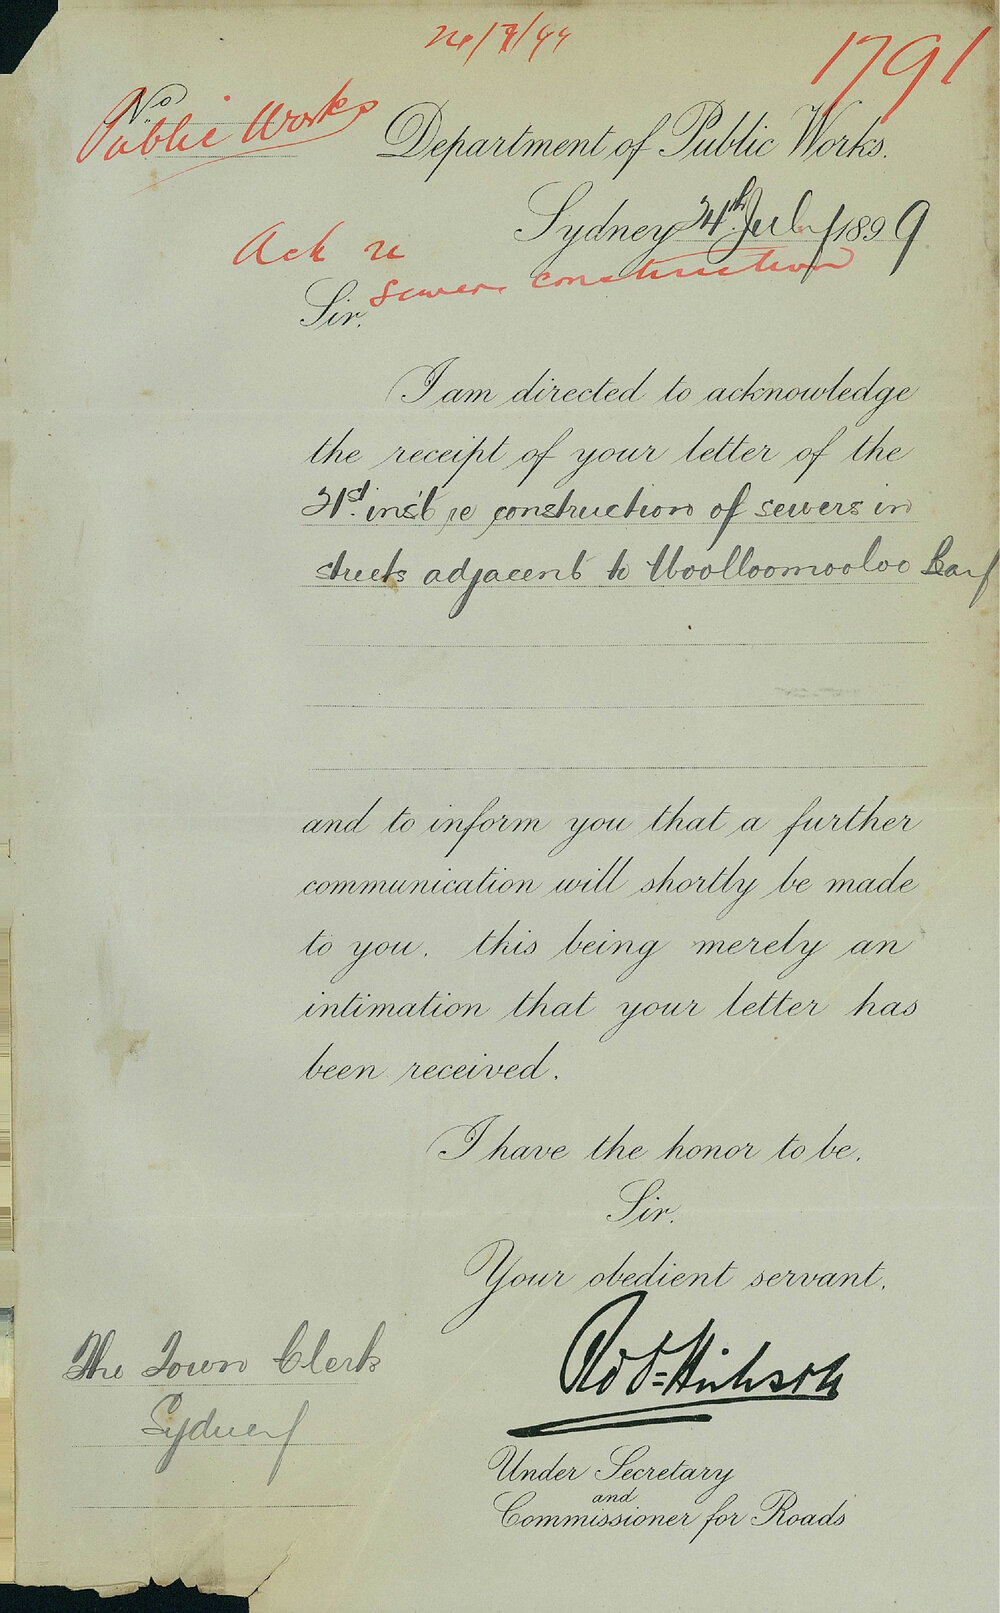 26/7/99
1791
No
Public Works
Department of Public Works.
Sydney 24th July 1899
Ack re
sewers construction
Sir,
I am directed to acknowledge
the receipt of your letter of the
21st inst re construction of sewers in
streets adjacent to Woolloomooloo Bay
and to inform you that a further
communication will shortly be made
to you, this being merely an
intimation that your letter has
been received.
I have the honor to be,
Sir,
Your obedient servant,
Robt Hickson
The Town Clerk
Sydney
Under Secretary
and
Commissioner for Roads